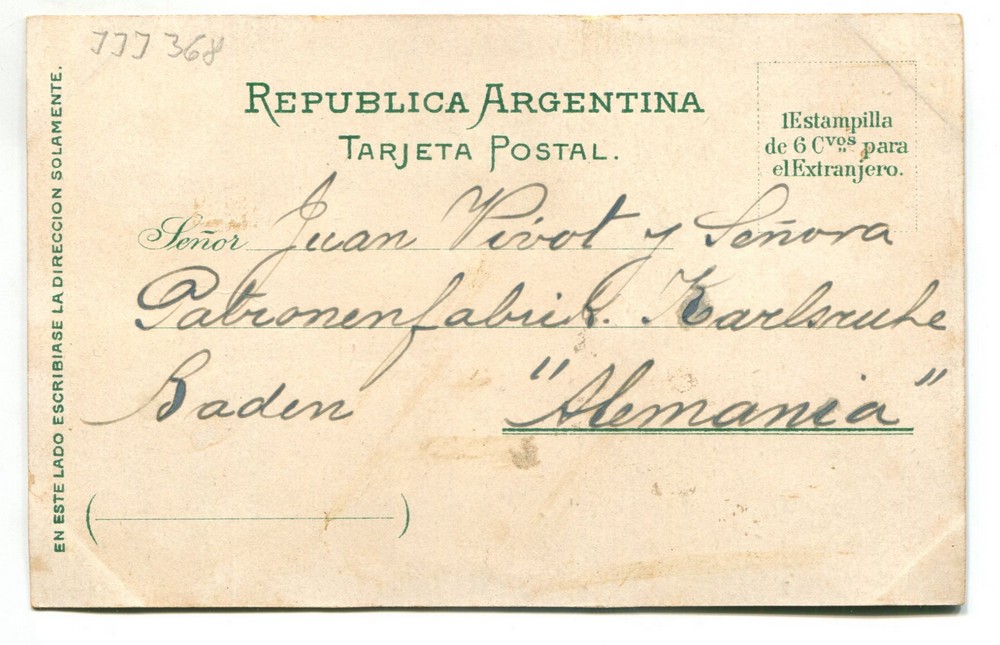 JJJ 368
REPUBLICA ARGENTINA
TARJETA POSTAL.
1Estampilla
de 6 Cvos para
el Extranjero.
EN ESTE LADO ESCRIBIASE LA DIRECCION SOLAMENTE.
Señor Juan Vivot y Señora
Patronenfabrik. Karlsruhe
Baden "Alemania"
( )